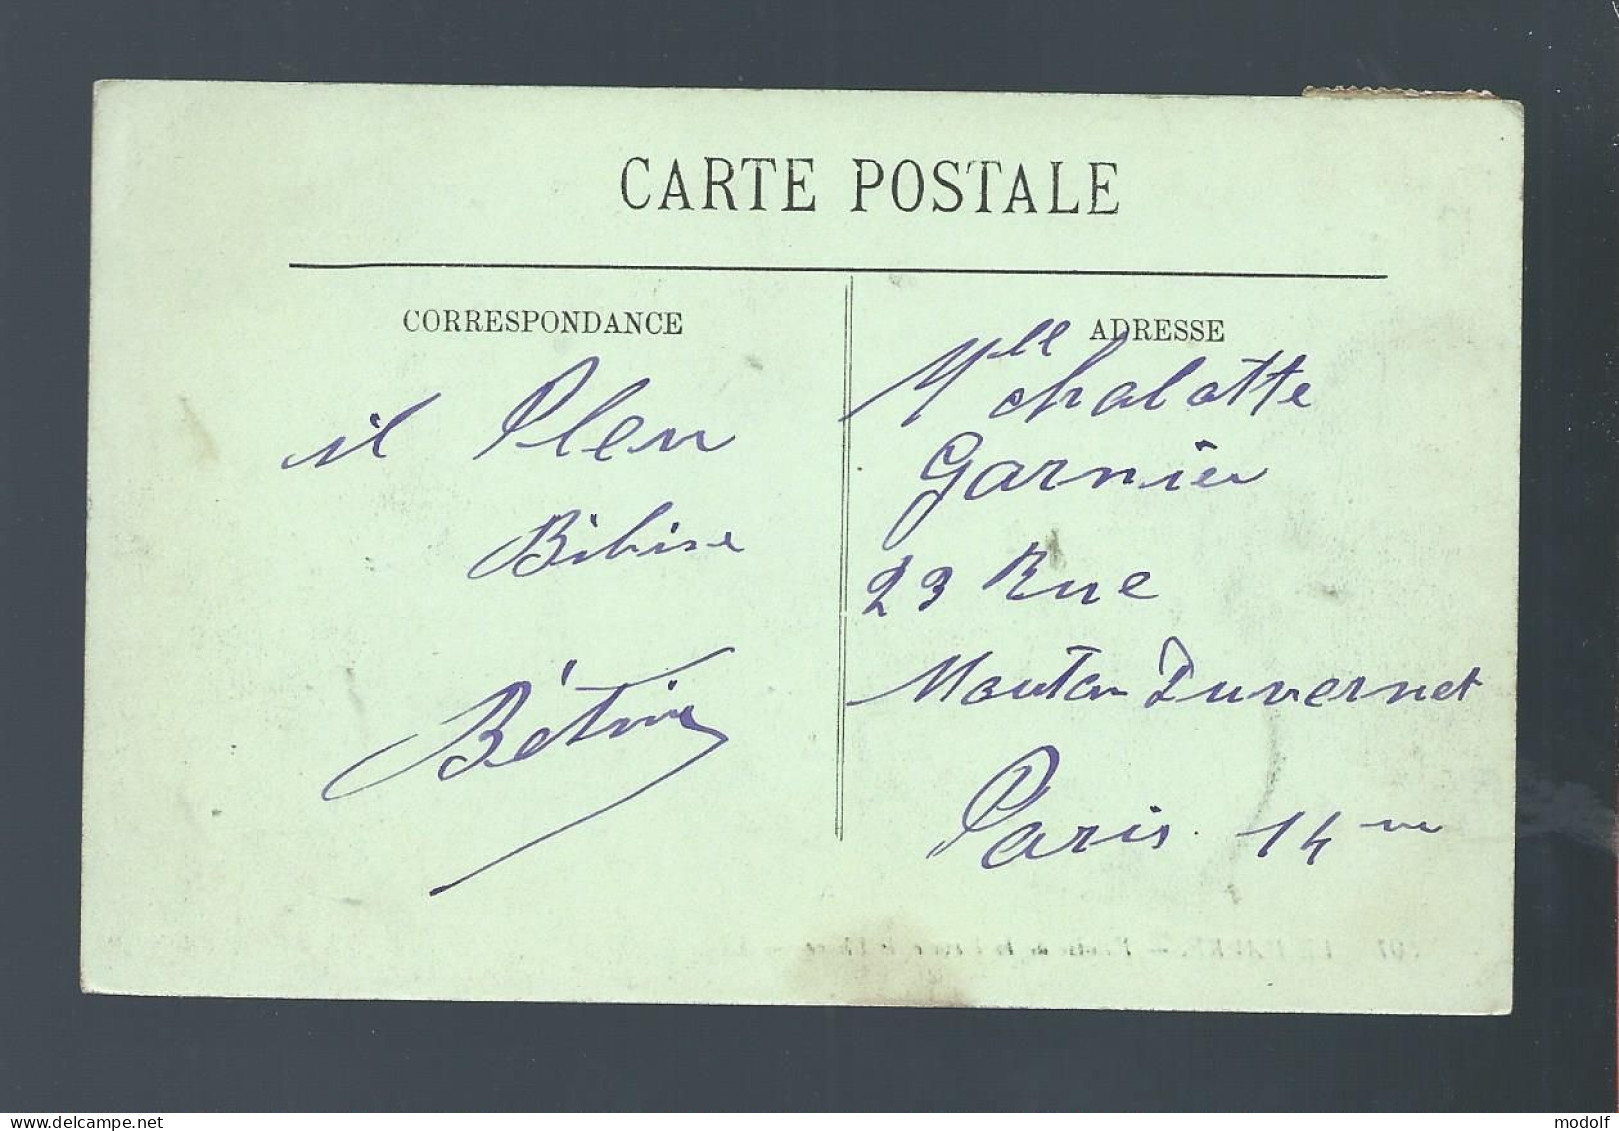 CARTE POSTALE
CORRESPONDANCE
il Pleu
Bibise
ADRESSE
Mlle chalotte
Garnier
23 Rue
Mouton Duvernet
Paris. 14me
www.delcampe.net
modolf